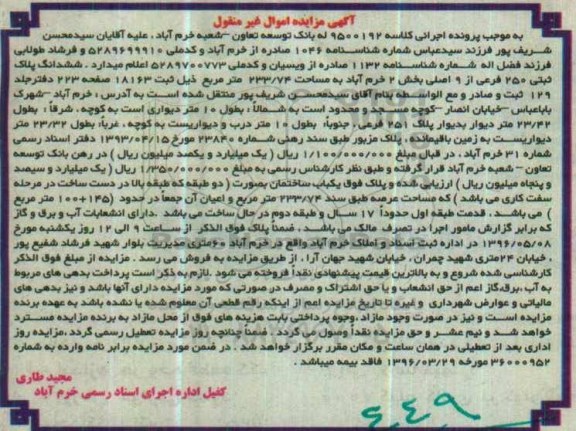 آگهی مزایده اموال غیر منقول
به موجب پرونده اجرائی کلاسه ۹۵۰۰۱۹۲ له بانک توسعه تعاون -شعبه خرم آباد ، علیه آقایان سیدمحسن
شریف پور فرزند سیدعباس شماره شناسنامه ۱۰۴۶ صادره از خرم آباد و کدملی ۵۲۸۹۶۹۹۹۱۰ و فرشاد طولابی
فرزند فضل اله شماره شناسنامه ۱۱۳۲ صادره از ویسیان و کدملی ۵۲۸۹۷۰۰۷۷۳ اعلام میدارد . ششدانگ پلاک
ثبتی ۲۵۰ فرعی از ۹ اصلی بخش ۲ خرم آباد به مساحت ۲۳۳/۷۴ متر مربع ذیل ثبت ۱۸۱۶۳ صفحه ۲۲۳ دفترجلد
۱۲۹ ثبت و صادر و مع الواسطه بنام آقای سیدمحسن شریف پور منتقل شده است به آدرس : خرم آباد -شهرک
باباعباس -خیابان انصار -کوچه مسجد و محدود است به شمالاً ، بطول ۱۰ متر دیواری است به کوچه . شرقاً ، بطول
۲۳/۴۲ متر دیوار بدیوار پلاک ۲۵۱ فرعی . جنوباً، بطول ۱۰ متر درب و دیواریست به کوچه . غرباً، بطول ۲۳/۳۲ متر
دیواریست به زمین باقیمانده . پلاک مزبور طبق سند رهنی شماره ۲۳۸۴۰ مورخ ۱۳۹۳/۰۲/۱۵ دفتر اسناد رسمی
شماره ۳۱ خرم آباد . در قبال مبلغ ۱/۱۰۰/۰۰۰/۰۰۰ ریال ( یک میلیارد و یکصد میلیون ریال ) در رهن بانک توسعه
تعاون - شعبه خرم آباد قرار گرفته و طبق نظر کارشناس رسمی به مبلغ ۱/۳۵۰/۰۰۰/۰۰۰ ریال ( یک میلیارد و سیصد
و پنجاه میلیون ریال ) ارزیابی شده و پلاک فوق یکباب ساختمان بصورت ( دو طبقه که طبقه بالا در دست ساخت در مرحله
سفت کاری می باشد ) که مساحت عرصه طبق سند ۲۳۳/۷۴ متر مربع و اعیان آن جمعاً در حدود (۱۴۵+۱۰۰ متر مربع
) می باشد . قدمت طبقه اول حدوداً ۱۷ سال و طبقه دوم در حال ساخت می باشد .دارای انشعابات آب و برق و گاز
که برابر گزارش مامور اجرا در تصرف مالک می باشد . ضمناً پلاک فوق الذکر از ساعت ۹ الی ۱۲ روز یکشنبه مورخ
۱۳۹۶/۰۵/۰۸ در اداره ثبت اسناد و املاک خرم آباد واقع در خرم آباد ۶۰متری مدیریت بلوار شهید فرشاد شفیع پور
. خیابان ۲۴متری شهید چمران ، خیابان شهید جهان آرا ، از طریق مزایده به فروش می رسد . مزایده از مبلغ فوق الذکر
کارشناسی شده شروع و به بالاترین قیمت پیشنهادی نقداً فروخته می شود .لازم به ذکر است پرداخت بدهی های مربوط
به آب ،برق،گاز اعم از حق انشعاب و یا حق اشتراک و مصرف در صورتی که مورد مزایده دارای آنها باشد و نیز بدهی های
مالیاتی و عوارض شهرداری و غیره تا تاریخ مزایده اعم از اینکه رقم قطعی آن معلوم شده یا نشده باشد به عهده برنده
مزایده است و نیز در صورت وجود مازاد ،وجوه پرداختی بابت هزینه های فوق از محل مازاد به برنده مزایده مسترد
خواهد شد و نیم عشر و حق مزایده نقداً وصول می گردد . ضمناً چنانچه روز مزایده تعطیل رسمی گردد ،مزایده روز
اداری بعد از تعطیلی در همان ساعت و مکان مقرر برگزار خواهد شد . در ضمن مورد مزایده برابر نامه وارده به شماره
۳۶۰۰۰۹۵۲ مورخه ۱۳۹۶/۰۳/۲۹ فاقد بیمه میباشد .
مجید طاری
کفیل اداره اجرای اسناد رسمی خرم آباد
۶۴۹